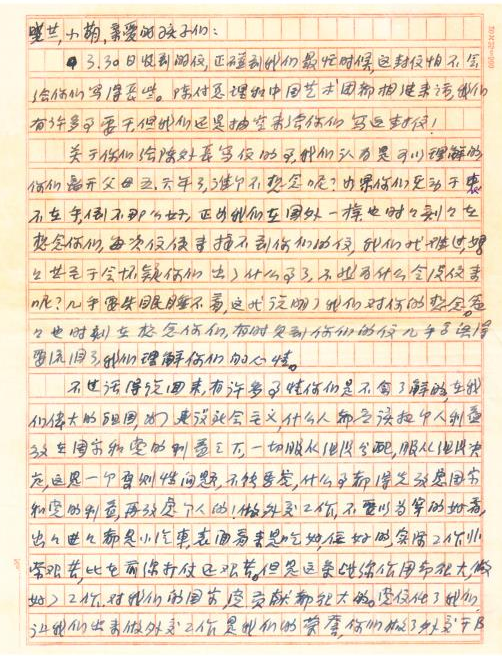 晓芸,小萌,亲爱的孩子们:
3.30日收到的信,正碰到我们最忙时候,这封信怕不会
给你们写得长些。陈付总理和中国艺术团都相继来访我们
有许多事要干,但我们还是抽空来给你们写这封信!
关于你们给陈外长写信的事,我们认为是可以理解的
你们离开父母五、六年了,谁个不想念呢?如果你们无动于衷
不在乎,倒不那么好,正如我们在国外一样也时々刻々在
想念你们,每次信使来接不到你们的信,我们就难过,妈
々甚至于会怀疑你们出了什么事了,不然为什么会没信来
呢?几乎要失眠睡不着,这就说明了我们对你们的想念。爸
々也时刻在想念你们,有时受到你们的信几乎高兴得
要流泪了,我们理解你们的心情。
不过话得说回来,有许多事情你们是不会了解的,在我
们伟大的祖国,为了建设社会主义,什么人都应该把个人利益
放在国家和党的利益之下,一切服从组织分配,服从组织决
定,这是一个原则性问题,不能要求,什么事都得先考虑国家
和党的利益,再考虑个人的!做外交工作,不要以为穿的好看,
出々进々都是小汽车,表面看来是吃好,住好的,实际工作非
常艰苦,比在前线打仗还艰苦。但是这条战线作用都很大,做
好了工作,对我们的国家,党贡献都很大的。党信任了我们,
让我们出来做外交工作是我们的荣誉,你们做了外交干部